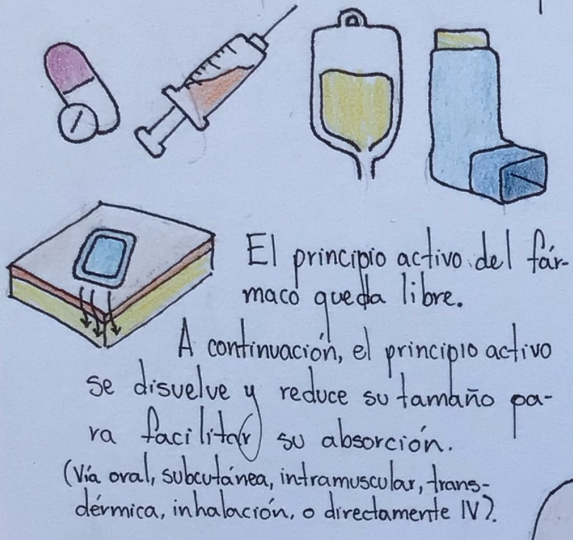 El principio activo del fár-
maco queda libre.
A continuación, el principio activo
se disuelve y reduce su tamaño pa-
ra facilitar su absorción.
(Vía oral, subcutánea, intramuscular, trans-
dérmica, inhalación, o directamente IV).